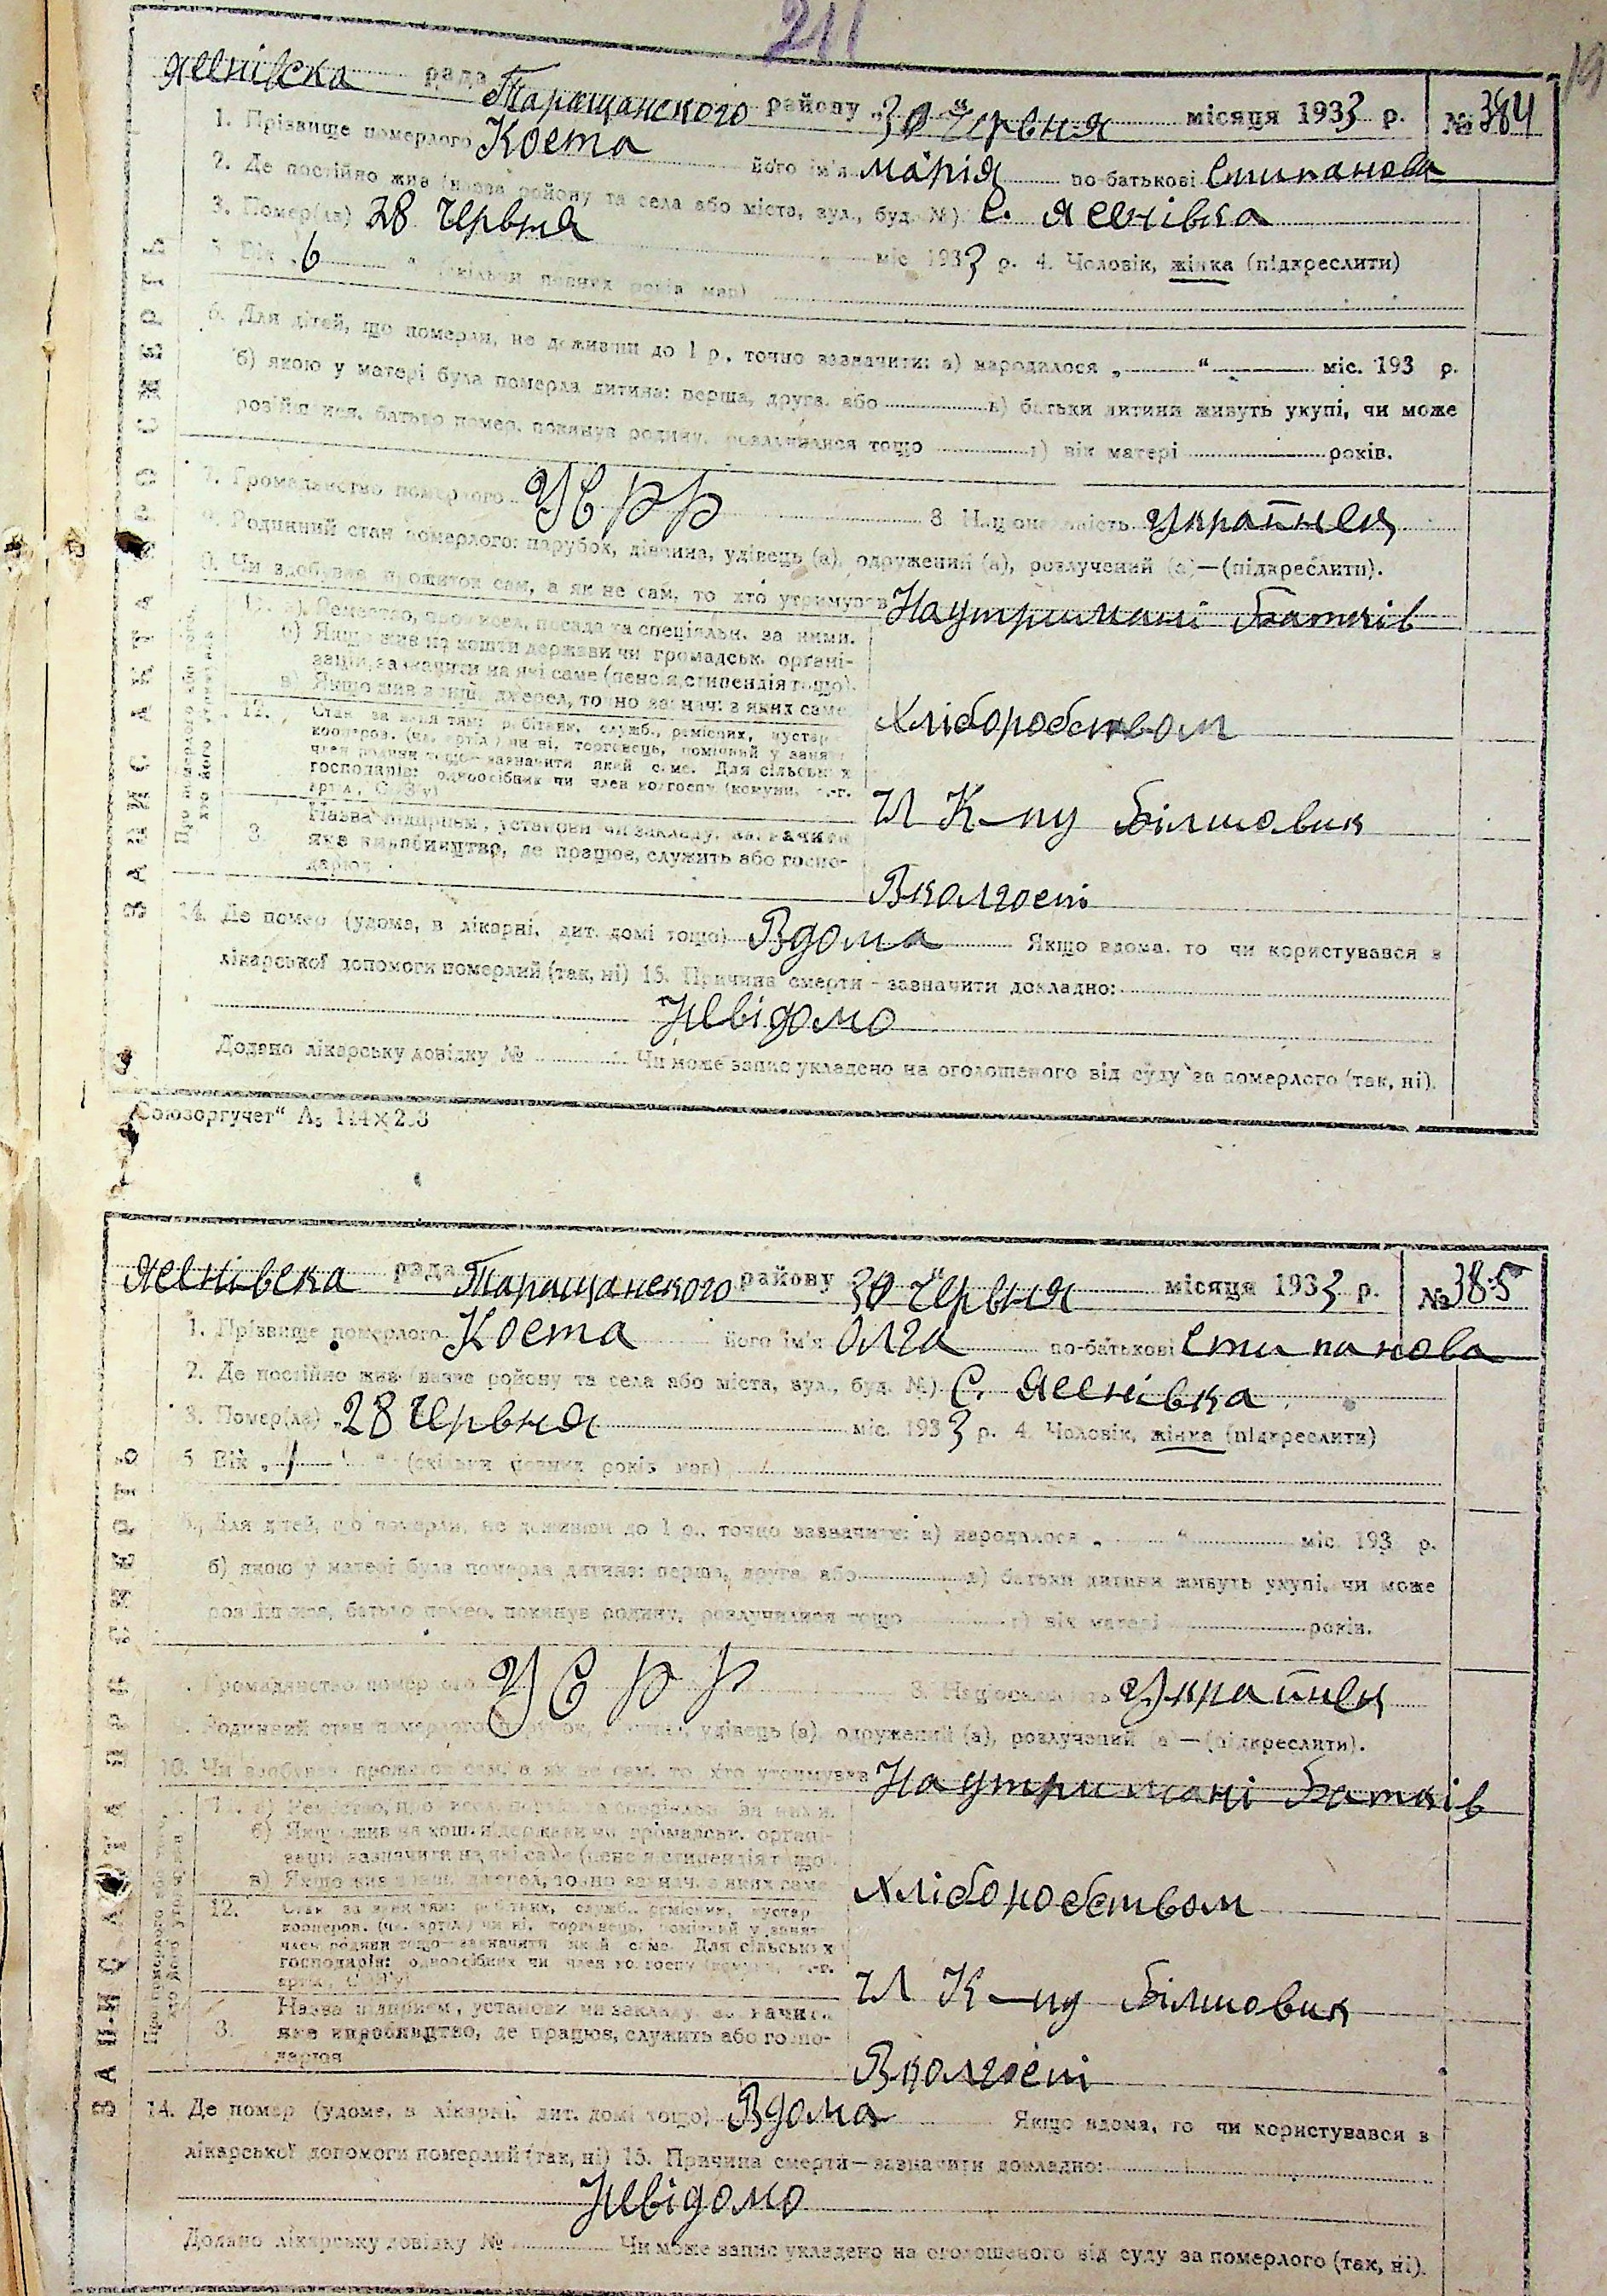 211
19
Ясенівска рада Таращанского району „30" Червня місяця 1933 р. № 384
1. Прізвище померлого Коста його ім'я Марія по-батькові Стипанова
2. Де постійно жив (назва району та села або міста, вул., буд. №) С. Ясенівка
3. Помер(ла) 28 Червня міс. 1933 р. 4. Чоловік, жінка (підкреслити)
5. Вік „6" (скільки повних років мав)
6. Для дітей, що померли, не доживши до 1 р., точно зазначити: а) народилося „ " міс. 193 р.
б) якою у матері була померла дитина: перша, друга, або в) батьки дитини живуть укупі, чи може
розійшлися, батько помер, покинув родину, розлучилися тощо г) вік матері років.
7. Громадянство померлого УСРР 8 Національність Українец
9. Родинний стан померлого: парубок, дівчина, удівець (а), одружений (а), розлучений (а)—(підкреслити).
10. Чи здобував прожиток сам, а як не сам, то хто утримував На утримані Батьків
11. а) Ремество, професія, посада та спеціальн. за ними.
б) Якщо жив на кошти держави чи громадськ. органі-
зацій, зазначити на які саме (пенсія, стипендія тощо).
в) Якщо жив з інш. джерел, точно зазнач. з яких саме
Хліборобством
12. Стан за заняттям: робітник, служб., ремісник, кустар
кооперов. (чл. артіл.) чи ні, торговець, помічний у занят.
член родини тощо—зазначити який саме. Для сільських
господарів: одноосібник чи член колгоспу (комуни, с.-г.
артіл., СОЗ'у)
Ч К-пу Більшовик
3. Назва підприєм., установи чи закладу, зазначити
яке виробництво, де працює, служить або госпо-
дарює
В колгоспі
14. Де помер (удома, в лікарні, дит. домі тощо) Вдома Якщо вдома, то чи користувався з
лікарської допомоги померлий (так, ні) 15. Причина смерти—зазначити докладно:
Невідомо
Додано лікарську довідку № Чи може запис укладено на оголошеного від суду за померлого (так, ні).
ЗАПИС АКТА ПРО СМЕРТЬ
„Союзоргучет“
Ясенівска рада Таращанского району „30" Червня місяця 1933 р. № 385
1. Прізвище померлого Коста його ім'я Олга по-батькові Стипанова
2. Де постійно жив (назва району та села або міста, вул., буд. №) С. Ясенівка
3. Помер(ла) 28 Червня міс. 1933 р. 4. Чоловік, жінка (підкреслити)
5 Вік „1" (скільки повних років мав)
6. Для дітей, що померли, не доживши до 1 р., точно зазначити: а) народилося „ " міс. 193 р.
б) якою у матері була померла дитина: перша, друга, або в) батьки дитини живуть укупі, чи може
розійшлися, батько помер, покинув родину, розлучилися тощо г) вік матері років.
Громадянство померлого УСРР 8. Національність Українец
Родинний стан померлого: парубок, дівчина, удівець (а), одружений (а), розлучений (а)—(підкреслити).
10. Чи здобував прожиток сам, а як не сам, то хто утримував На утримані Батьків
11. а) Ремество, професія, посада та спеціальн. за ними.
б) Якщо жив на кошти держави чи громадськ. органі-
зацій, зазначити на які саме (пенсія, стипендія тощо).
в) Якщо жив з інш. джерел, точно зазнач. з яких саме
Хліборобством
12. Стан за заняттям: робітник, служб., ремісник, кустар
кооперов. (чл. артіл.) чи ні, торговець, помічний у занят.
член родини тощо—зазначити який саме. Для сільських
господарів: одноосібник чи член колгоспу (комуни, с.-г.
артіл., СОЗ'у)
Ч К-пу Більшовик
3. Назва підприєм., установи чи закладу, зазначити
яке виробництво, де працює, служить або госпо-
дарює
В колгоспі
14. Де помер (удома, в лікарні, дит. домі тощо) Вдома Якщо вдома, то чи користувався з
лікарської допомоги померлий (так, ні) 15. Причина смерти—зазначити докладно:
Невідомо
Додано лікарську довідку № Чи може запис укладено на оголошеного від суду за померлого (так, ні).
ЗАПИС АКТА ПРО СМЕРТЬ